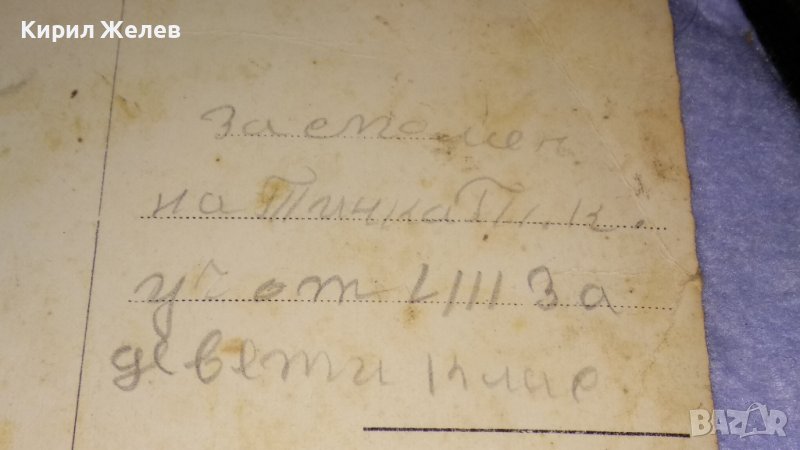 Кирил Желев
За спомен
на Тинка П. к.
уч от VIII За
девети клас
BAZAR